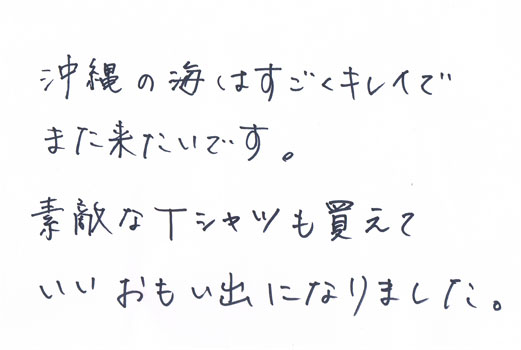 沖縄の海はすごくキレイで
また来たいです。
素敵なTシャツも買えて
いいおもい出になりました。